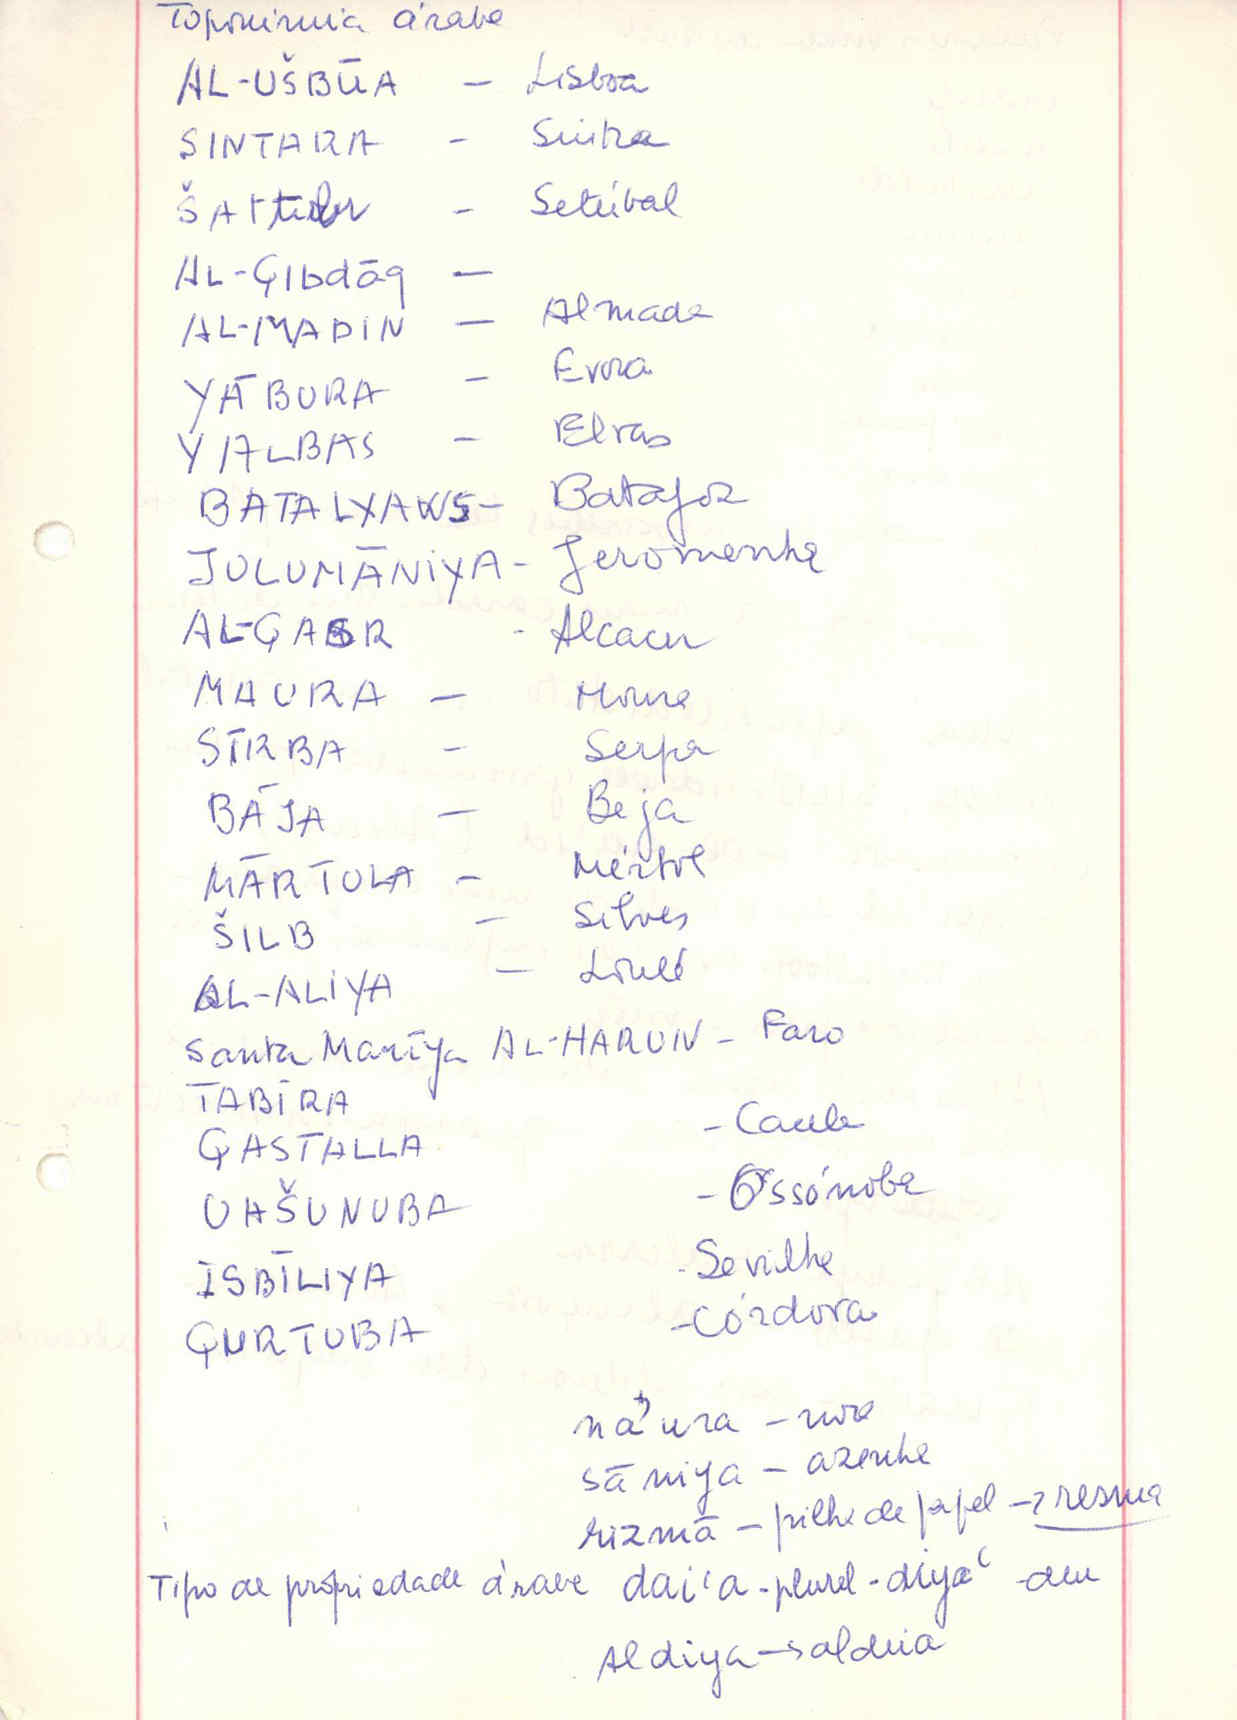 Toponimia árabe
AL-UŠBŪA – Lisboa
SINTARA – Sintra
ŠAT – Setúbal
AL-ÇIbdāq –
AL-MADIN – Almada
YĀBURA – Evora
YALBAS – Elvas
BATALYAWS – Batajoz
JULUMĀNIYA – Jeromenha
AL-ÇASR - Alcacer
MAURA – Moura
SĪRBA – Serpa
BĀJA – Beja
MĀRTULA – Mértol
ŠILB – Silves
AL-ALIYA – Loulé
Santa Marīya AL-HARUN – Faro
TABĪRA
ÇASTALLA – Cacela
UHŠUNUBA – Ossónoba
ISBĪLIYA - Sevilha
ÇURTUBA – Córdova
nā'ura – nora
sāniya – azenha
rizmā – pilha de papel → resma
Tipo de propriedade árabe dai'a - plural - diya' - deu
Aldiya → aldeia